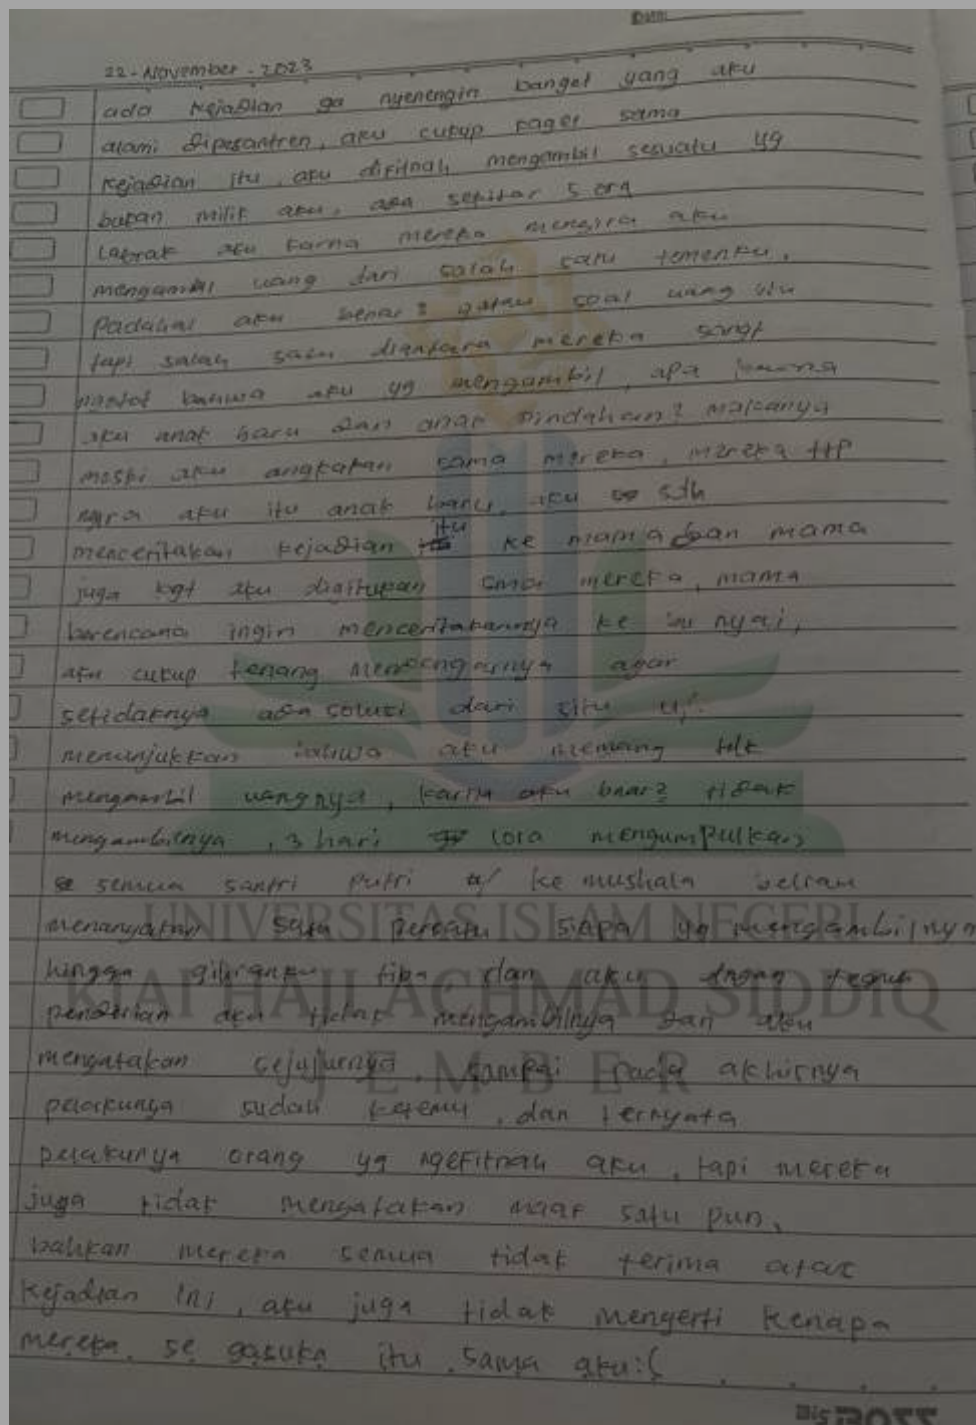 Date:
22 - November - 2023
ada kejadian ga nyenengin banget yang aku
alami dipesantren, aku cukup kaget sama
kejadian itu, aku difitnah mengambil sesuatu yg
bukan milik aku, ada sekitar 5 org
labrak aku karna mereka mengira aku
mengambil uang dari salah satu temenku,
padahal aku benar2 gatau soal uang itu
tapi salah satu diantara mereka sangt
ngotot bahwa aku yg mengambil, apa karena
aku anak baru dan anak pindahan? makanya
meski aku angkatan sama mereka, mereka ttp
ngira aku itu anak baru, aku sdh
menceritakan kejadian itu ke mama dan mama
juga kgt aku digitukan sma mereka, mama
berencana ingin menceritakannya ke bu nyai,
aku cukup tenang mendengarnya agar
setidaknya ada solusi dari situ u/
menunjukkan bahwa aku memang tdk
mengambil uangnya, karna aku bnar2 tidak
mengambilnya, 3 hari lora mengumpulkan
semua santri putri u/ ke mushala beliau
menanyakan satu persatu siapa yg mengambilnya
hingga giliranku tiba, dan aku dngan teguh
pendirian aku tidak mengambilnya dan aku
mengatakan sejujurnya, sampai pada akhirnya
pelakunya sudah ketemu, dan ternyata
pelakunya orang yg ngefitnah aku, tapi mereka
juga tidak mengatakan maaf satu pun,
bahkan mereka semua tidak terima atas
kejadian ini, aku juga tidak mengerti kenapa
mereka se gasuka itu sama aku:(
UNIVERSITAS ISLAM NEGERI
KIAI HAJI ACHMAD SIDDIQ
JEMBER